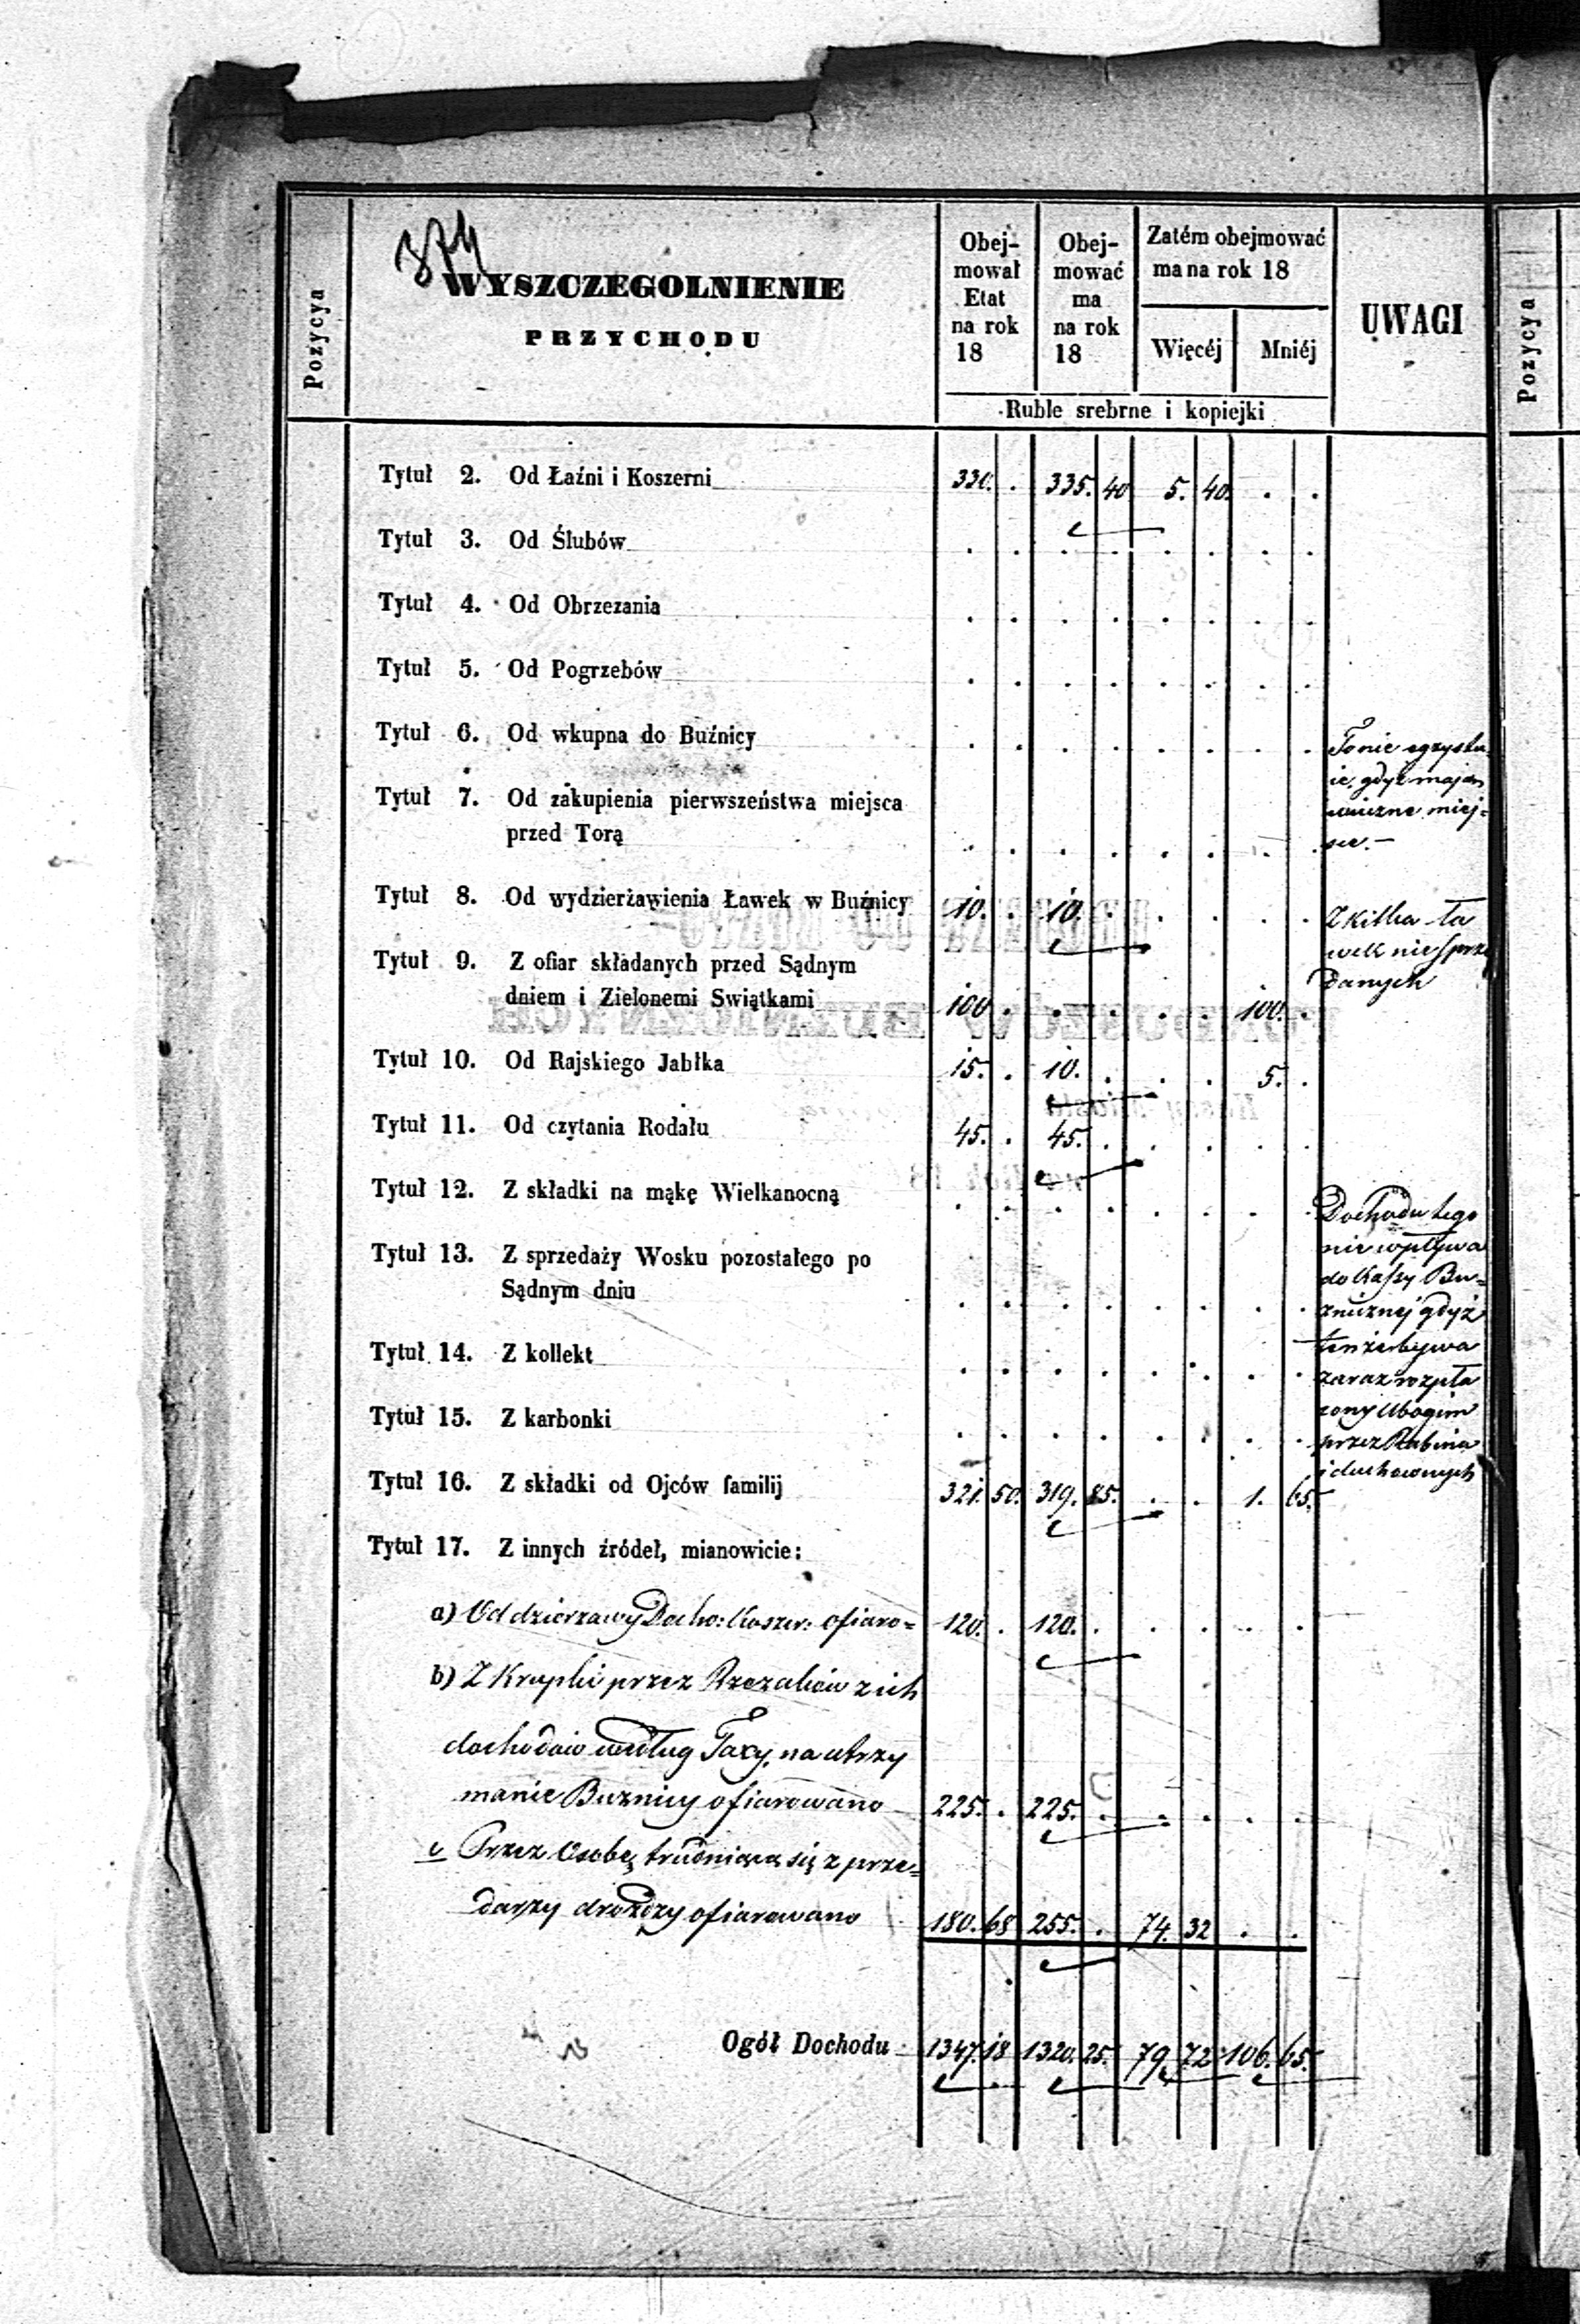 374
Pozycya
WYSZCZEGOLNIENIE
PRZYCHODU
Obej-
mował
Etat
na rok
18
Obej-
mować
ma
na rok
18
Zatém obejmować
ma na rok 18
Więcéj Mniéj
Ruble srebrne i kopiejki
UWAGI
Pozycya
Tytuł 2. Od Łaźni i Koszerni 330. . 335. 40 5. 40. . .
Tytuł 3. Od Ślubów . . . . . . . .
Tytuł 4. Od Obrzezania . . . . . . . .
Tytuł 5. Od Pogrzebów . . . . . . . .
Tytuł 6. Od wkupna do Buźnicy . . . . . . . .
Tytuł 7. Od zakupienia pierwszeństwa miejsca
przed Torą . . . . . . . .
To nie egzystu-
ie, gdyż mają
miejsce.—
Tytuł 8. Od wydzierżawienia Ławek w Buźnicy 10. . 10. . . . . .
Z kilku ła
wek nie sprze
danych
Tytuł 9. Z ofiar składanych przed Sądnym
dniem i Zielonemi Swiątkami 100 . . . . . 100. .
Tytuł 10. Od Rajskiego Jabłka 15. . 10. . . . 5. .
Tytuł 11. Od czytania Rodału 45. . 45. . . . . .
Tytuł 12. Z składki na mąkę Wielkanocną . . . . . . . .
Tytuł 13. Z sprzedaży Wosku pozostałego po
Sądnym dniu . . . . . . . .
Tytuł 14. Z kollekt . . . . . . . .
Tytuł 15. Z karbonki . . . . . . . .
Dochodu tego
nie wpływa
do Kassy Bu-
źnicznej gdyż
tenże bywa
zaraz rozpła
cony Ubogim
przez Rabina
i duchownych
Tytuł 16. Z składki od Ojców familij 321. 50. 319. 85. . . 1. 65.
Tytuł 17. Z innych źródeł, mianowicie:
a) Od dzierzawy Docho: Koszer: ofiaro= 120. . 120. . . . . .
b) Z Krupki przez Rzezaków z ich
dochodów według Taxy, na utrzy
manie Buznicy ofiarowano 225. . 225. . . . . .
c Przez Osobę trudniącą się z prze=
darzy drożdży ofiarowano 180. 68 255. . 74. 32 . .
Ogół Dochodu 1347. 18 1320. 25. 79 72 106. 65.